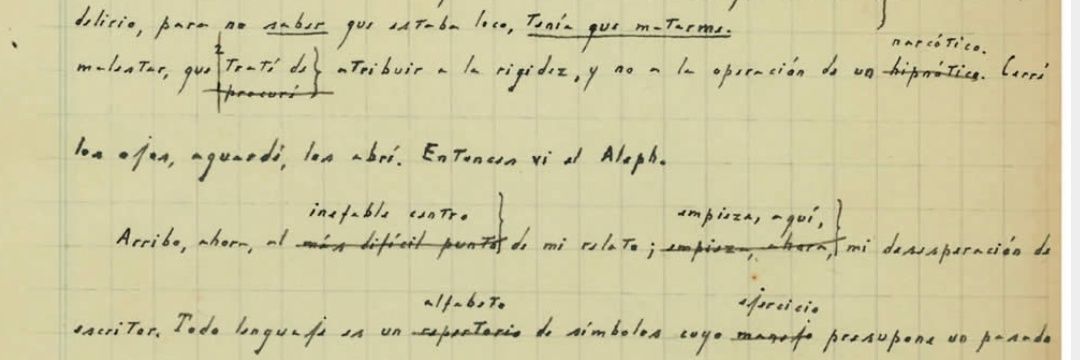 delirio, para no saber que estaba loco, tenía que matarme.
narcótico.
malestar, que traté de atribuir a la rigidez, y no a la operación de un hipnótico. Cerré
procuré
los ojos, aguardé, los abrí. Entonces vi el Aleph.
inefable centro empieza, aquí,
Arribo, ahora, al más difícil punto de mi relato; empieza, ahora, mi desesperación de
alfabeto ejercicio
escritor. Todo lenguaje es un repertorio de símbolos cuyo manejo presupone un pasado